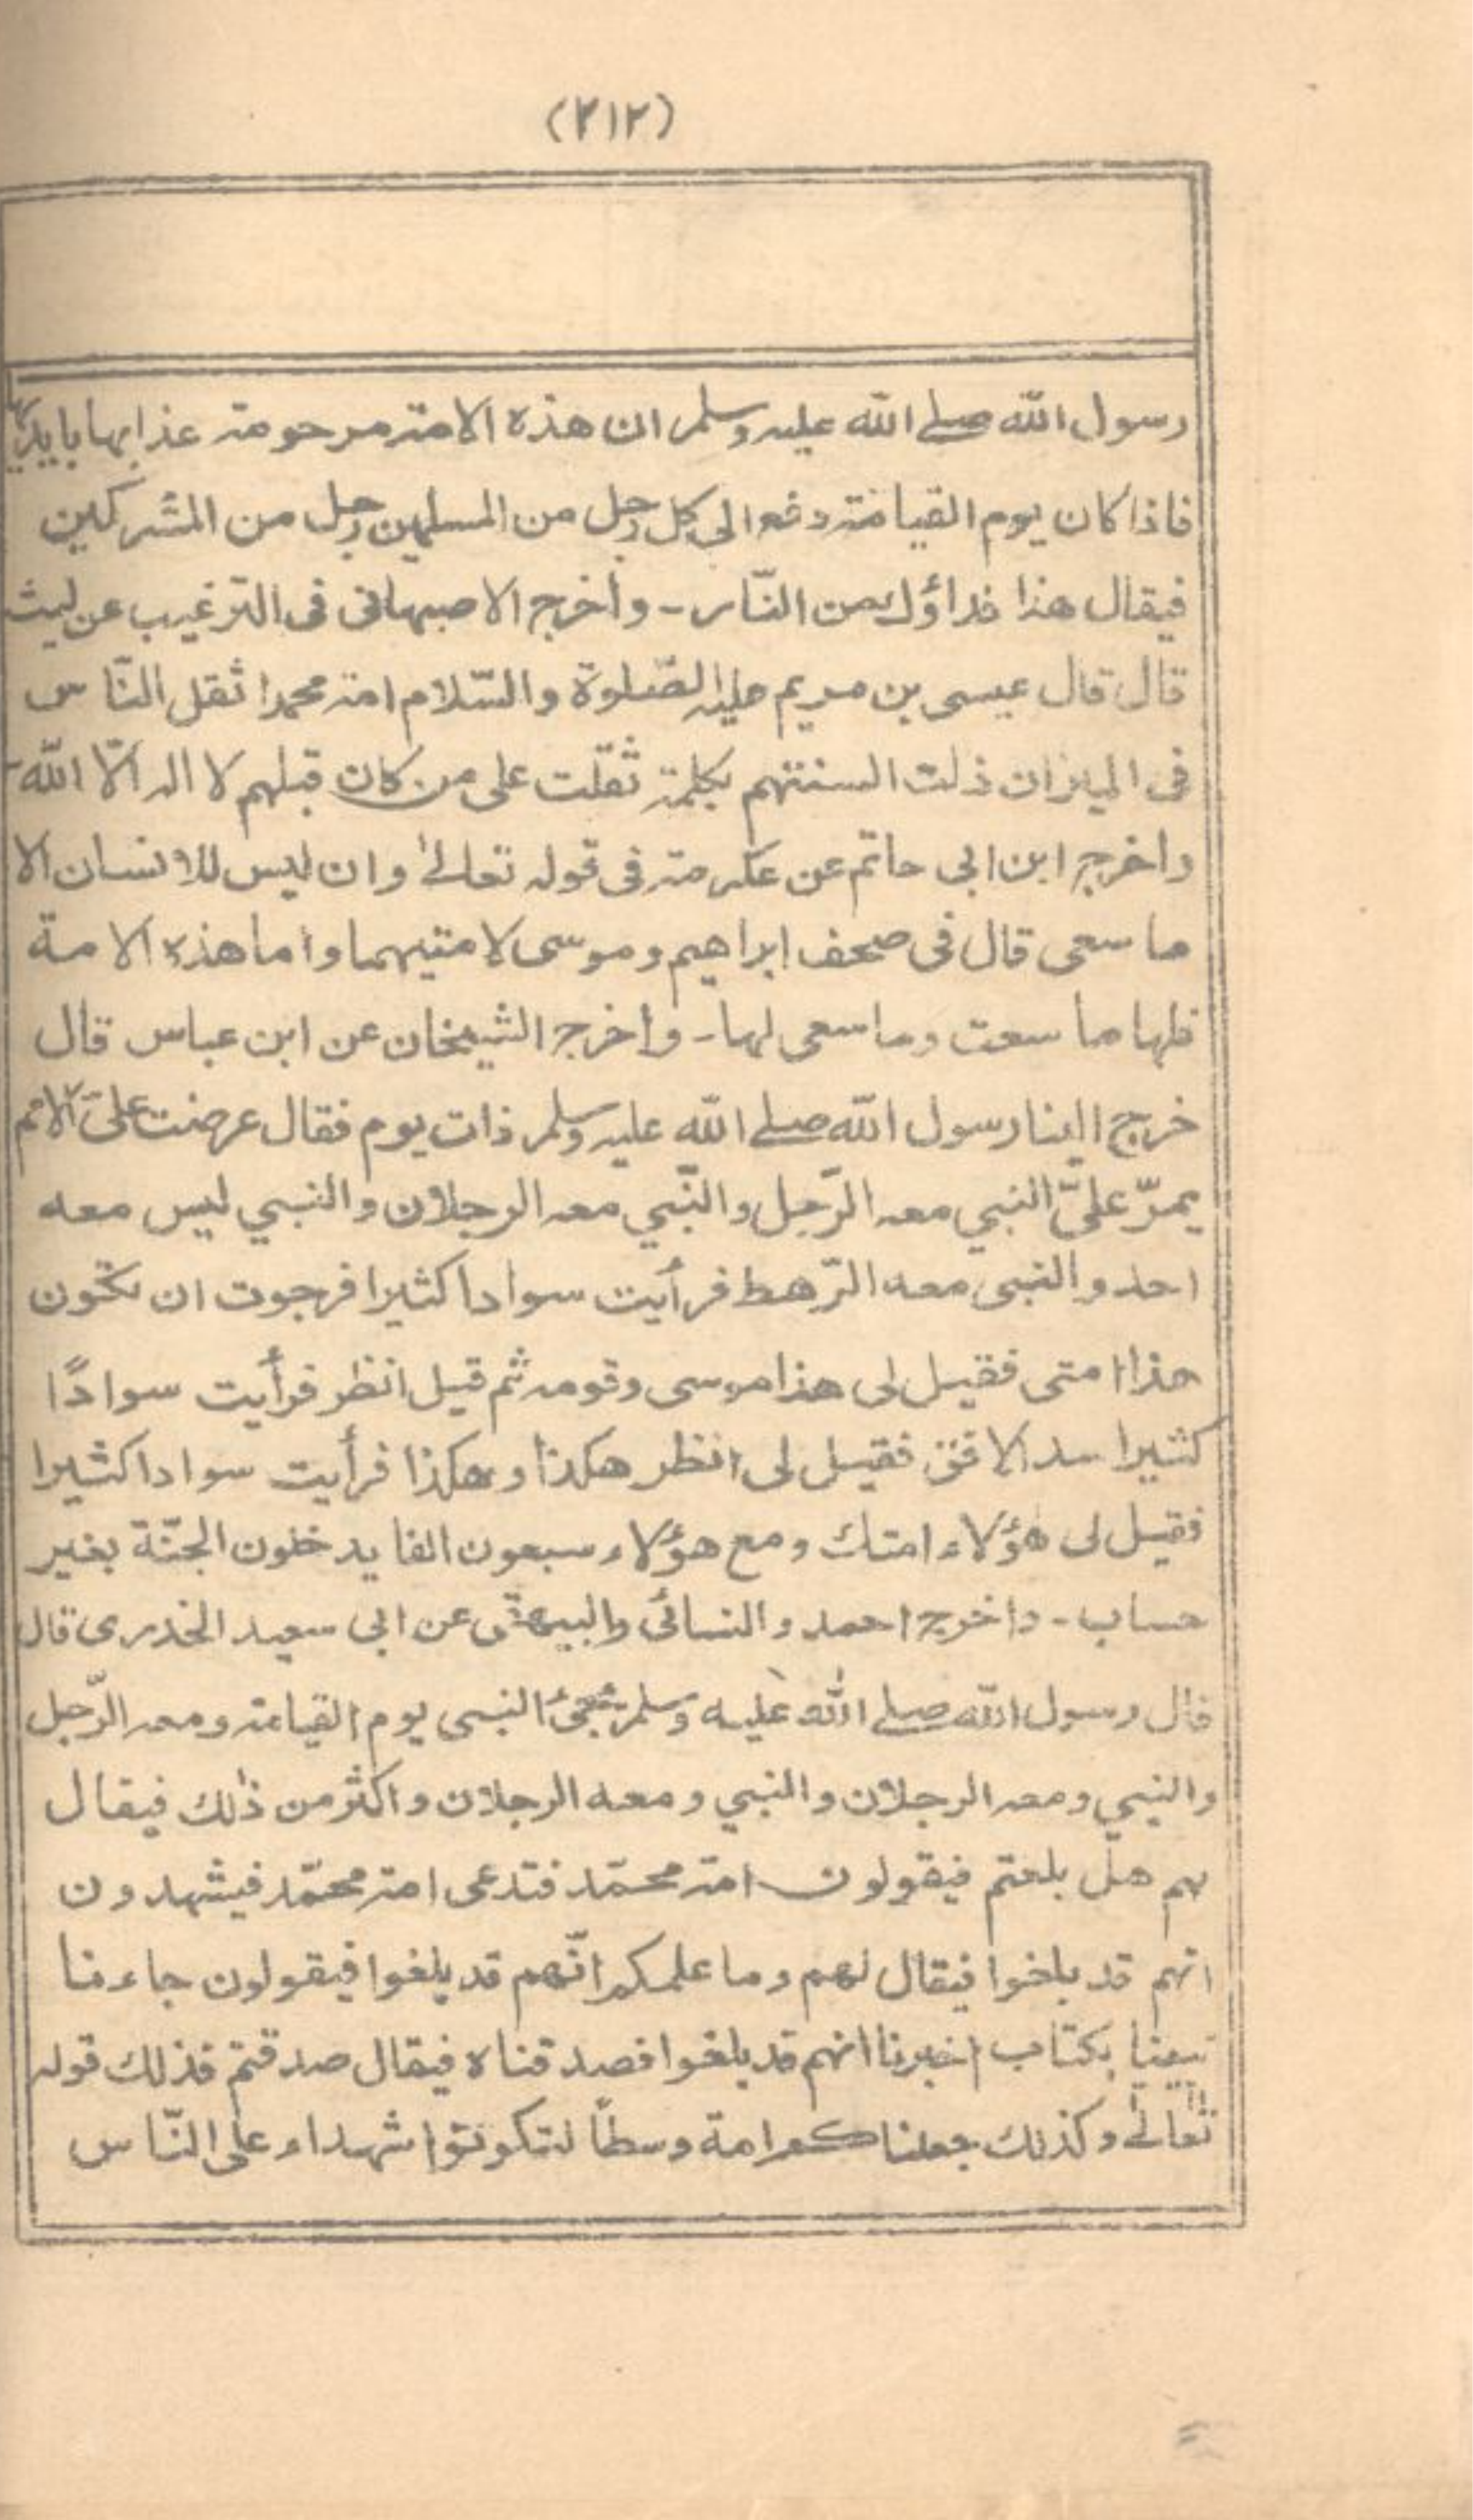 (٢١٢)
رسول الله صلے الله عليه وسلم ان هذه الامة مرحومة عذابها بايديها
فاذا كان يوم القيامة دفع الى كل رجل من المسلمين رجل من المشركين
فيقال هذا فداؤك من النّار - واخرج الاصبهانى فى الترغيب عن ليث
قال قال عيسى بن مريم عليه الصّلوة والسّلام امة محمد اثقل النّاس
فى الميزان ذلت السنتهم بكلمة ثقلت على من كان قبلهم لا اله الّا الله -
واخرج ابن ابى حاتم عن عكرمة فى قوله تعالےٰ وان ليس للانسان الا
ما سعى قال فى صحف ابراهيم وموسى لامتيهما واما هذه الامة
فلها ما سعت وما سعى لها - واخرج الشيخان عن ابن عباس قال
خرج الينا رسول الله صلے الله عليه وسلم ذات يوم فقال عرضت علىّ الامم
يمرّ علىّ النبي معه الرّجل والنّبي معه الرجلان والنبي ليس معه
احد والنبى معه الرّهط فرأيت سوادا كثيرا فرجوت ان تكون
هذا امتى فقيل لى هذا موسى وقومه ثم قيل انظر فرأيت سوادًا
كثيرا سد الافق فقيل لى انظر هكذا وهكذا فرأيت سوادا كثيرا
فقيل لى هؤلاء امتك ومع هؤلاء سبعون الفا يدخلون الجنّة بغير
حساب - واخرج احمد والنسائى والبيهقى عن ابى سعيد الخدرى قال
قال رسول الله صلے الله عليه وسلم يجئ النبى يوم القيامة ومعه الرّجل
والنبي ومعه الرجلان والنبي ومعه الرجلان واكثر من ذٰلك فيقال
لهم هل بلغتم فيقولون امة محمّد فتدعى امة محمّد فيشهدون
انهم قد بلغوا فيقال لهم وما علمكم انّهم قد بلغوا فيقولون جاءنا
نبينا بكتاب اخبرنا انهم قد بلغوا فصدقناه فيقال صدقتم فذلك قوله
تعالےٰ وكذلك جعلناكم امة وسطاً لتكونوا شهداء على النّاس